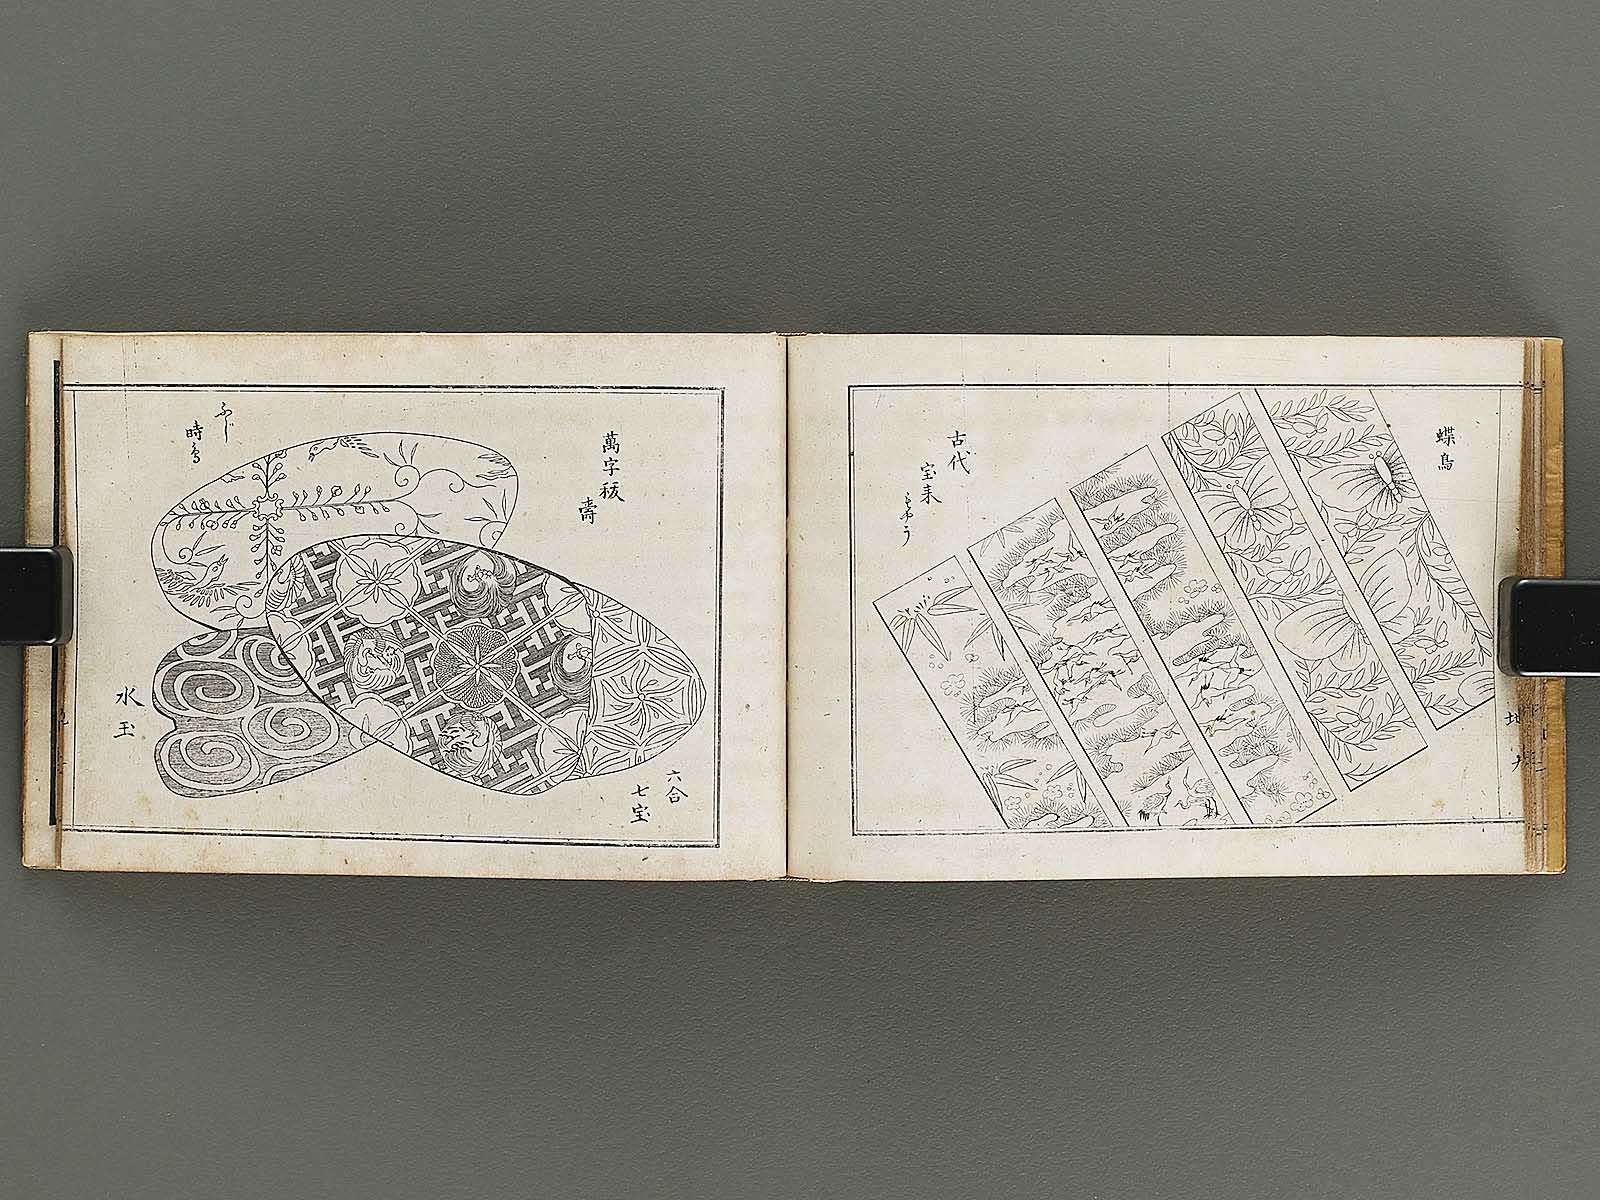 蝶鳥
古代
宝来
もやう
地
萬字
壽
六合
七宝
ふじ
時鳥
水玉